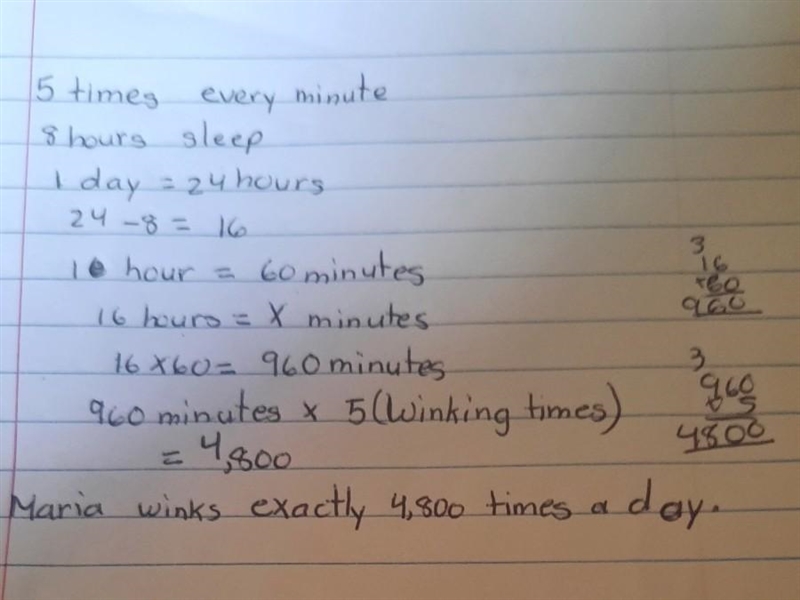 5 times every minute
8 hours sleep
1 day = 24 hours
24 - 8 = 16
1 hour = 60 minutes
16 hours = X minutes
16 x 60 = 960 minutes
960 minutes x 5 (Winking times)
= 4,800
Maria winks exactly 4,800 times a day.
3
16
x 60
960
3
960
x 5
4800